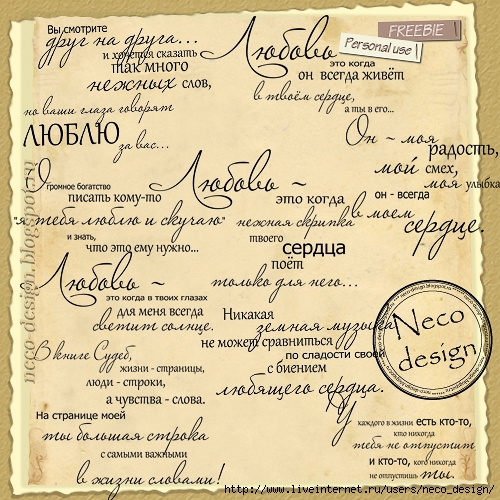 Вы смотрите
друг на друга...
и хочется сказать
так много
нежных слов,
но ваши глаза говорят
ЛЮБЛЮ
за вас...
Любовь ~
это когда
он всегда живёт
в твоём сердце,
а ты в его...
FREEBIE
Personal use
Он ~ моя
радость,
мой смех,
моя улыбка
он - всегда
в моем
сердце.
Огромное богатство
писать кому-то
"я тебя люблю и скучаю"
и знать,
что это ему нужно...
Любовь ~
это когда
нежная скрипка
твоего
сердца
поёт
только для него...
Любовь ~
это когда в твоих глазах
для меня всегда
светит солнце.
Никакая
земная музыка
не может сравниться
по сладости своей
с биением
любящего сердца.
В книге Судеб,
жизни - страницы,
люди - строки,
а чувства - слова.
На странице моей
ты большая строка
с самыми важными
в жизни словами!
У
каждого в жизни есть кто-то,
кто никогда
тебя не отпустит
и кто-то, кого никогда
не отпустишь ты.
Neco
design
neco-design.blogspot.ru
http://www.liveinternet.ru/users/neco_design/